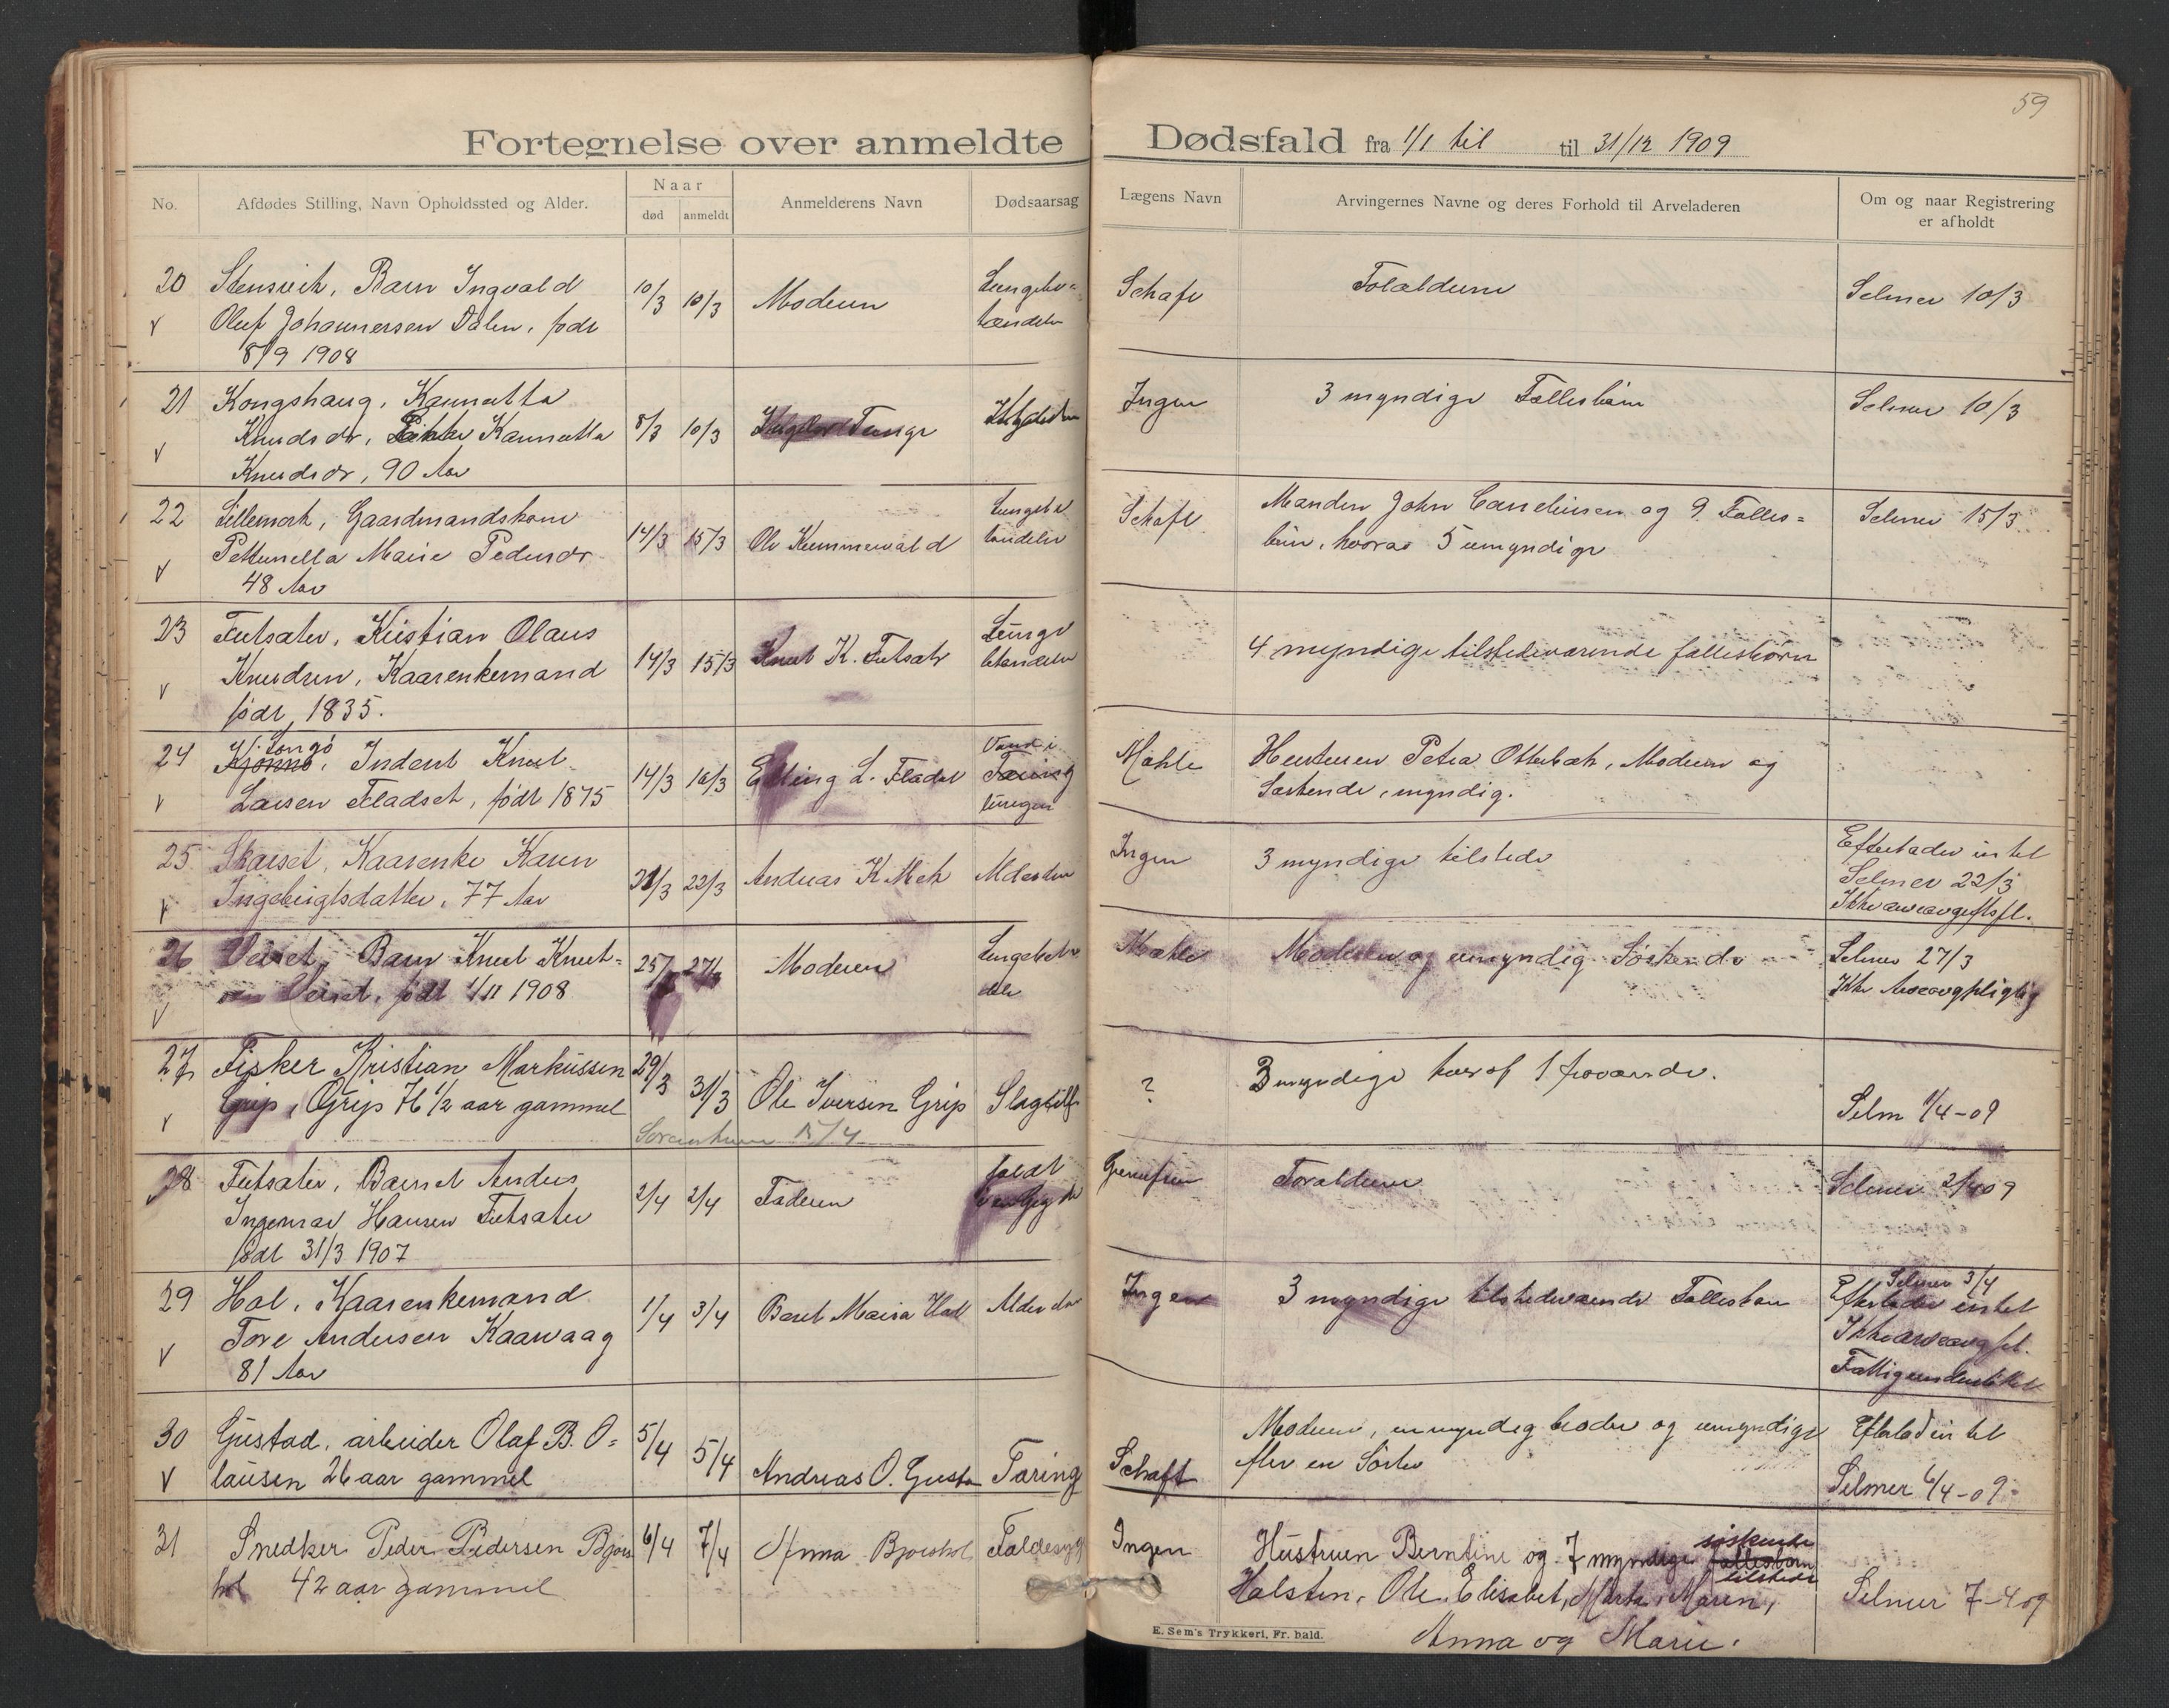 59
Fortegnelse over anmeldte Dødsfald fra 1/1 til til 31/12 1909
No. Afdødes Stilling, Navn Opholdssted og Alder. Naar død anmeldt Anmelderens Navn Dødsaarsag Lægens Navn Arvingernes Navne og deres Forhold til Arveladeren Om og naar Registrering er afholdt
20 Stensvik, Barn Ingvald 10/3 10/3 Moderen Lungebe- Schaft Forældrene Selmer 10/3
V Oluf Johannersen Dalen, født tændelse
8/9 1908
21 Kongshaug, Kannutta 8/3 10/3 Tange Ingen 3 myndige Fællesbørn Selmer 10/3
V Knudsdr, Kannutta
Knudsdr, 90 Aar
22 Lillemork, Gaardmandskone 14/3 15/3 Ole Kummervold Lungebe Schaft Manden John Corneliusen og 9 Fælles= Selmer 15/3
V Petternella Marie Pedersdr tændelse børn, hvorav 5 umyndige
48 Aar
23 Futsater, Kristian Olaus 14/3 15/3 Knut K. Futsæter Lunge 4 myndige tilstedeværende fællesbørn
V Knudsen, Kaarenkemand betændelse
født 1835.
24 Indent Knut 14/3 16/3 Elling L. Fladset Vand i Mæhle Hustruen Petra Otterbæk, Moderen og
V Larsen Fladset, født 1875 lungen Søskende, myndig.
25 Skarset, Kaarenke Karen 21/3 22/3 Andreas K Mek Alderdom Ingen 3 myndige tilstede Efterlader intet
V Ingebrigtsdatter, 77 Aar Selmer 22/3
Ikke arveavgiftspl.
26 Veiset, Barn Knut Knut= 25/3 27/3 Moderen Lungebetæn Mæhle Moderen og umyndig Søskende Selmer 27/3
V sen Veiset, født 1/11 1908 delse Ikke Arveavgpligtig
27 Fisker Kristian Markussen 29/3 31/3 Ole Iversen Grip Slagtilf ? 3 myndige hvoraf 1 fraværende. Selm 1/4-09
V Grip, Grip 76 1/2 aar gammel
28 Futsater, Barnet Anders 2/4 2/4 Faderen Forældrene Selmer 2/4 09
Ingemar Hansen Futsater
født 31/3 1907
29 Hol, Kaarenkemand 1/4 3/4 Beret Maria Hol Alderdom Ingen 3 myndige tilstedeværende Fællesbarn Selmer 3/4
V Tore Andersen Kaarvaag Efterlader intet
81 Aar Ikke arveavgpl.
Fattigunderstøttet
30 Gustad, arbeider Olaf B. O= 5/4 5/4 Andreas O. Gusta Tæring Schaft Moderen, en myndig broder og umyndige Efterlad intet
V lausen 26 aar gammel flere en Søster Selmer 6/4-09
31 Snedker Peder Pedersen Bjørs 6/4 7/4 Anna Bjørshol Faldesyg Ingen Hustruen Berntine og 7 myndige søskende fællesbørn tilstede
hol 42 aar gammel Halsten, Ole, Elisabet, Marta, Maren, Selmer 7-4 09
Anna og Marie.
E. Sem's Trykkeri, Fr. hald.